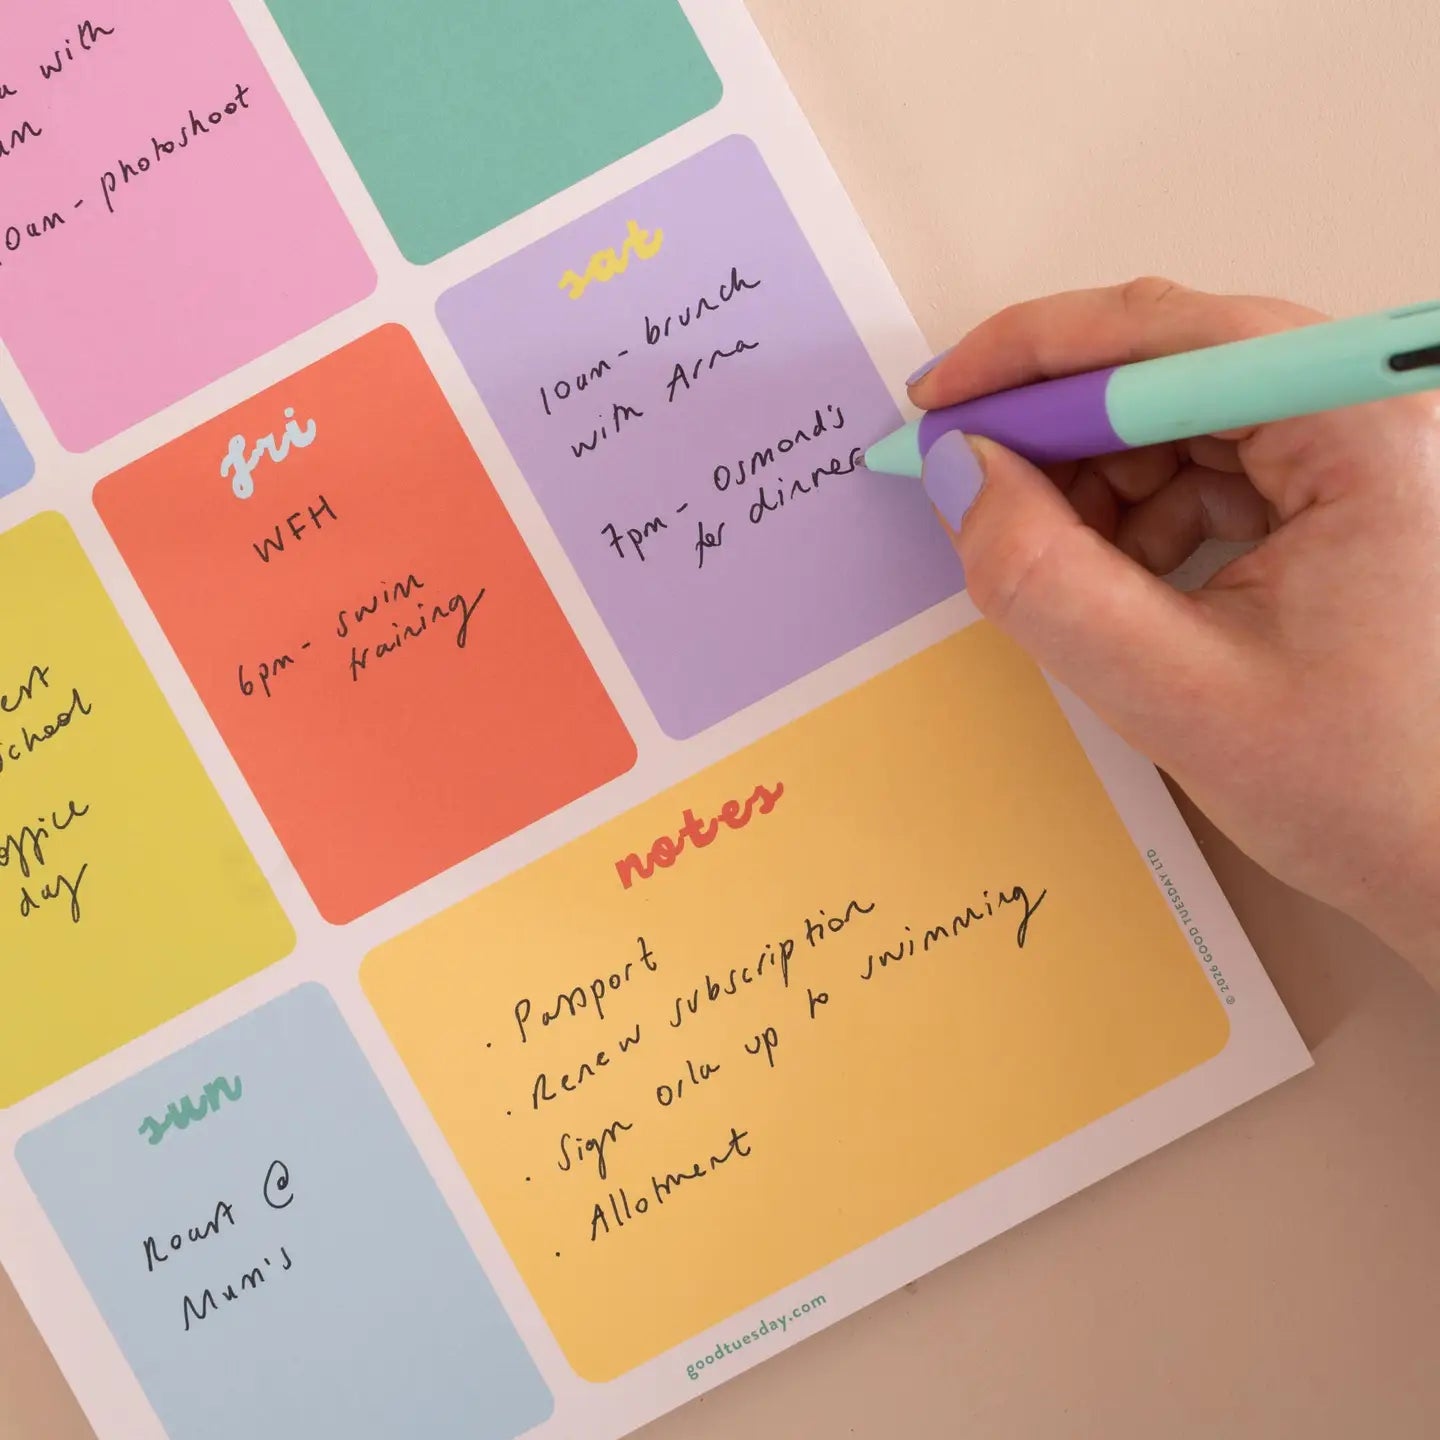 with
10am - photoshoot
sat
10am - brunch
with Anna
7pm - Osmond's
for dinner
fri
WFH
6pm - swim
training
school
office
day
notes
· Passport
· Renew subscription
· Sign orla up to swimming
· Allotment
sun
Roast @
Mum's
goodtuesday.com
© 2026 GOOD TUESDAY LTD